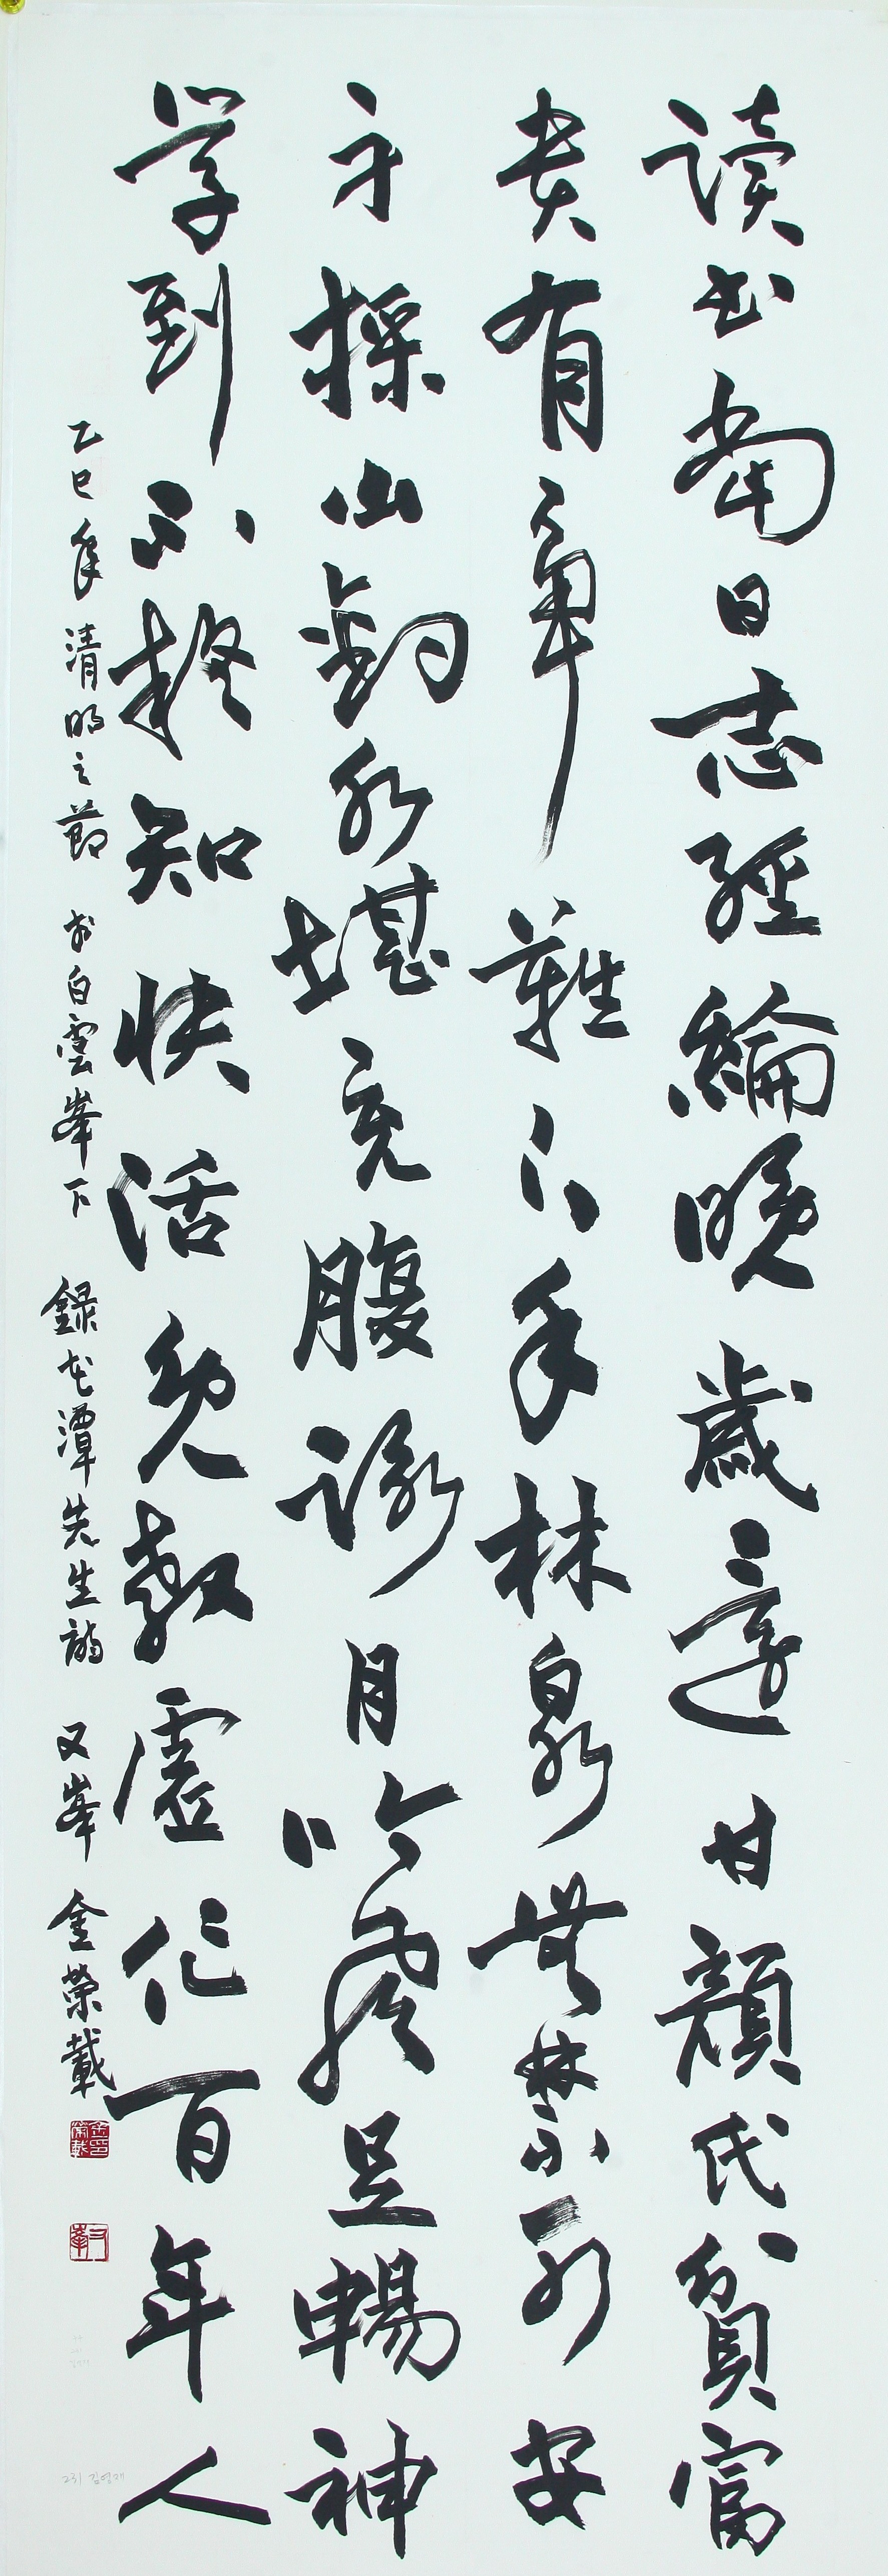 讀書當日志經綸晚歲還甘顔氏貧富
貴有爭難下手林泉無禁可安
身採山釣水堪充腹詠月吟風足暢神
學到不疑知快活免敎虛作百年人
乙巳年清明之節 於白雲峯下 錄花潭先生詩 又峯 金榮載
又峯
231 김영재